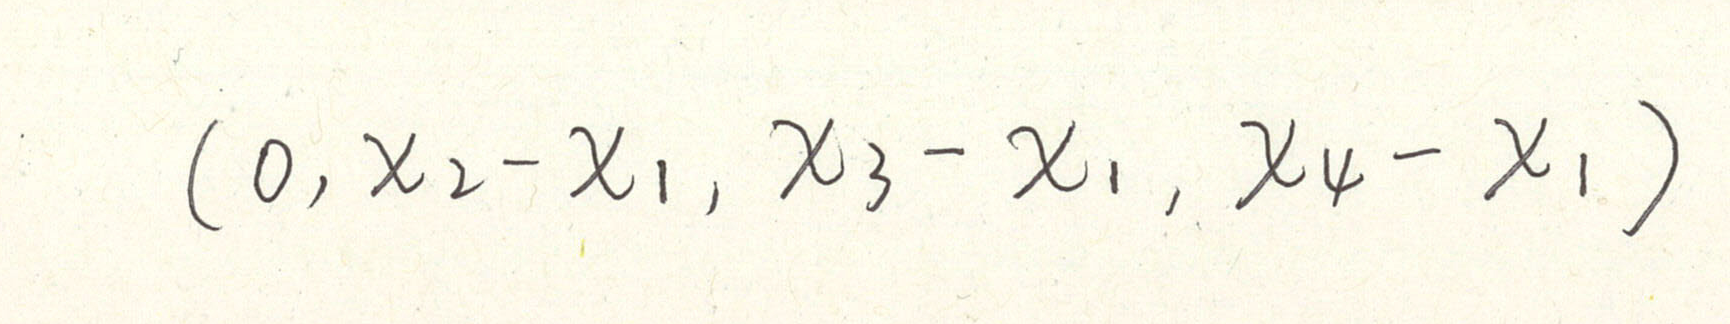 (0, x₂ - x₁, x₃ - x₁, x₄ - x₁)